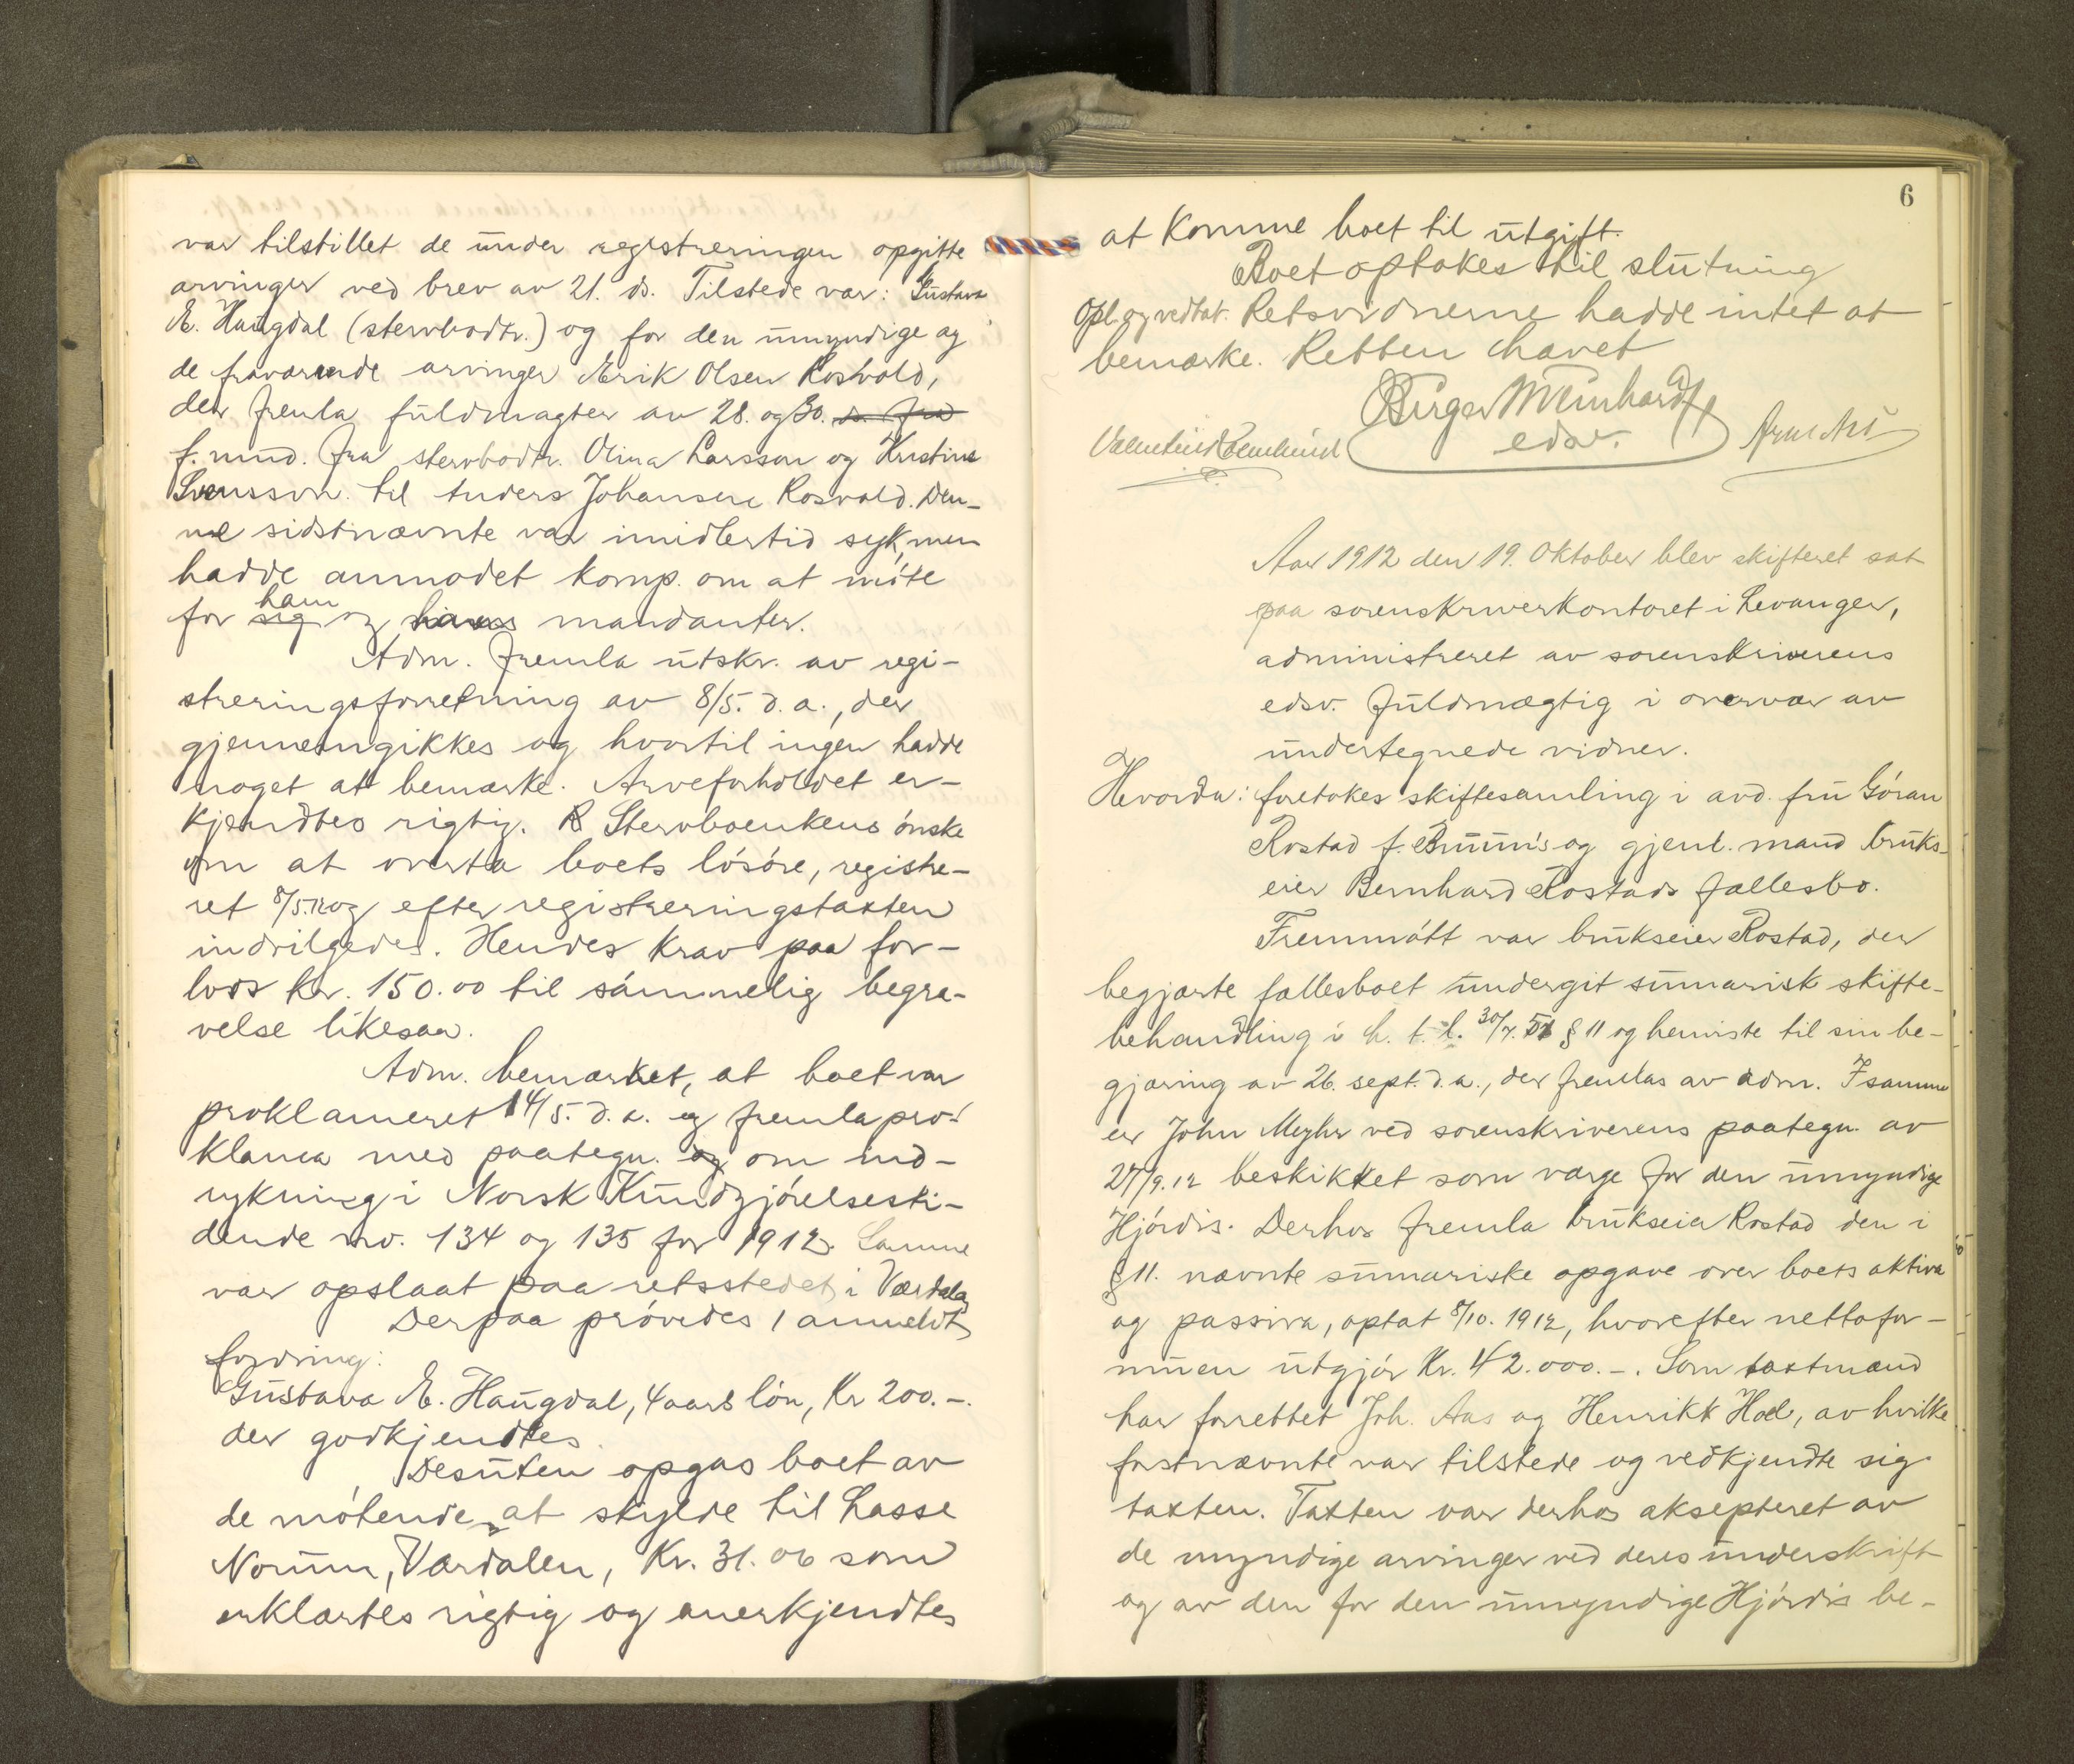 var tilstillet de under registreringen opgitte
arvinger ved brev av 21. ds. Tilstede var: Gustava
E. Haugdal (stervbodtr.) og for den umyndige og
de fraværende arvinger Erik Olsen Rosvold,
der fremla fuldmagter av 28. og 30. ds. fra
f. mnd. fra stervbodtr. Olina Larsson og Kristine
Svensson til Anders Johansen Rosvold. Den-
ne sidstnævnte var imidlertid syk, men
hadde anmodet komp. om at møte
for sig ham og hans mandanter.
Adm. fremla utskr. av regi-
streringsforretning av 8/5. d.a., der
gjennemgikkes og hvortil ingen hadde
noget at bemærke. Arveforholdet er-
kjendtes rigtig. Stervboenkens ønske
om at overta boets løsøre, registre-
ret 8/5.12 og efter registreringstaxten
indvilgedes. Hendes krav paa for-
lods kr. 150.00 til sømmelig begra-
velse likesaa.
Adm. bemærket, at boet var
proklameret 14/5. d.a. og fremla pro-
klama med paategn. og om ind-
rykning i Norsk Kundgjørelsesti-
dende no. 134 og 135 for 1912. Samme
var opslaat paa retsstedet i Værdalen
Derpaa prøvedes 1 anmeldt
fordring:
Gustava E. Haugdal, 4 aars løn, Kr 200.-.
der godkjendtes.
Desuten opgas boet av
de møtende at skylde til Lasse
Norum, Værdalen, Kr. 31.06 som
erklærtes rigtig og anerkjendtes
6
at komme boet til utgift.
Boet optakes til slutning
Opl. og vedtat. Retsvidnerne hadde intet at
bemærke. Retten hævet
Birger Meinhardt
edsv.
Aar 1912 den 19. Oktober blev skifteret sat
paa sorenskriverkontoret i Levanger,
administreret av sorenskriverens
edsv. fuldmægtig i overvær av
undertegnede vidner.
Hvorda: foretokes skiftesamling i avd. fru Gøran
Rostad f. Bruun's og gjenl. mand bruks-
eier Bernhard Rostads fællesbo.
Fremmøtt var brukseier Rostad, der
begjærte fællesboet undergit sumarisk skifte-
behandling i h. t. l. 30/7. 51 § 11 og henviste til sin be-
gjæring av 26. sept. d.a., der fremlas av adm. I samme
er John Myhr ved sorenskriverens paategn. av
27/9.12 beskikket som værge for den umyndige
Hjørdis. Derhos fremla brukseier Rostad den i
§ 11. nævnte sumariske opgave over boets aktiva
og passiva, optat 8/10. 1912, hvorefter nettofor-
muen utgjør Kr. 42.000.-. Som taxtmænd
har forrettet Joh. Aas og Henrikk Hoel, av hvilke
førstnævnte var tilstede og vedkjendte sig
taxten. Taxten var derhos aksepteret av
de myndige arvinger ved deres underskrift
og av den for den umyndige Hjørdis be-